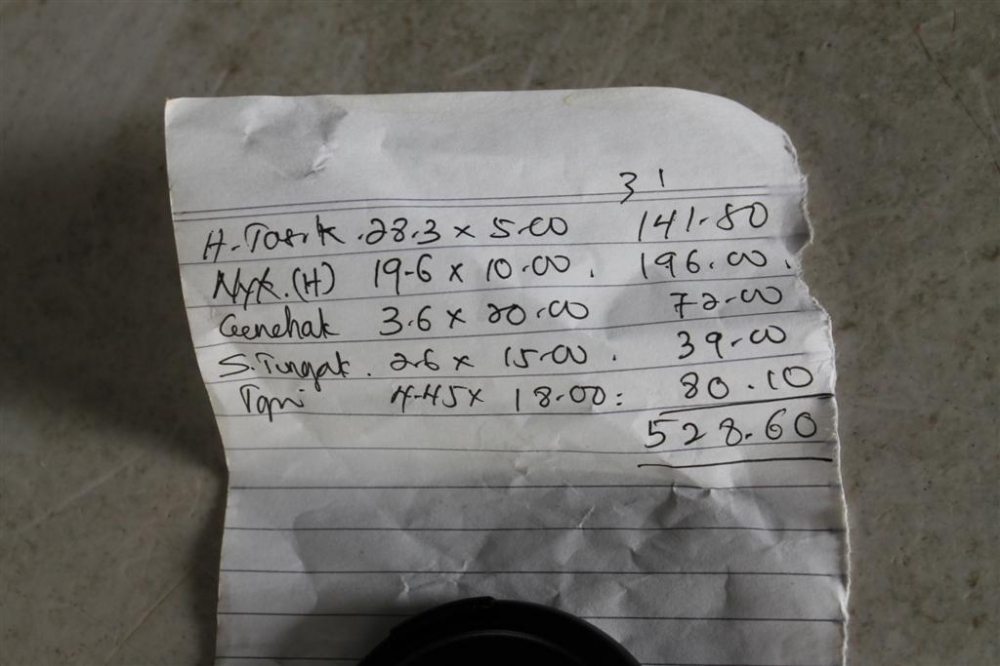 3 1
H. Tasik . 28.3 x 5.00 141.50
Nyk. (H) 19.6 x 10.00 . 196.00 .
Genehak 3.6 x 20.00 72.00
S. Tungak . 2.6 x 15.00 . 39.00
4.45 x 18.00 : 80.10
528.60